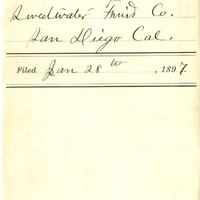 Sweetwater Fruit Co.
San Diego Cal.
Filed Jan 28th, 1897.